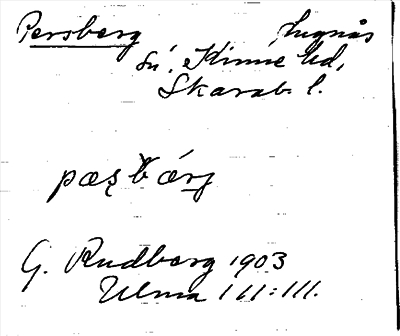 Persberg Lugnås
Sn. Kinne hd,
Skarab. l.
G. Rudberg 1903
Ulma 111:111.